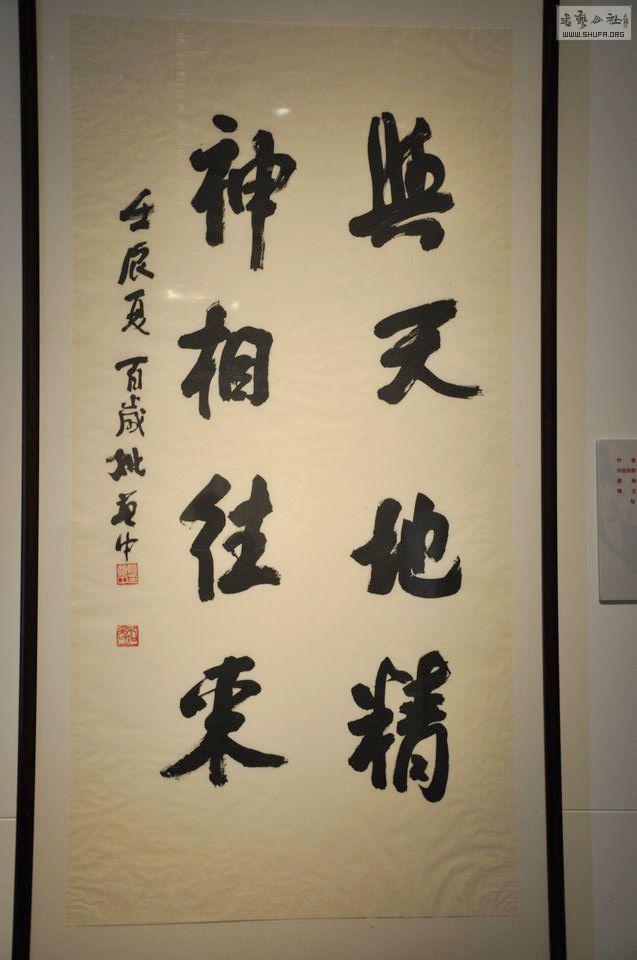 與天地精
神相往来
壬辰夏 百歲姚奠中
书艺公社
WWW.SHUFA.ORG